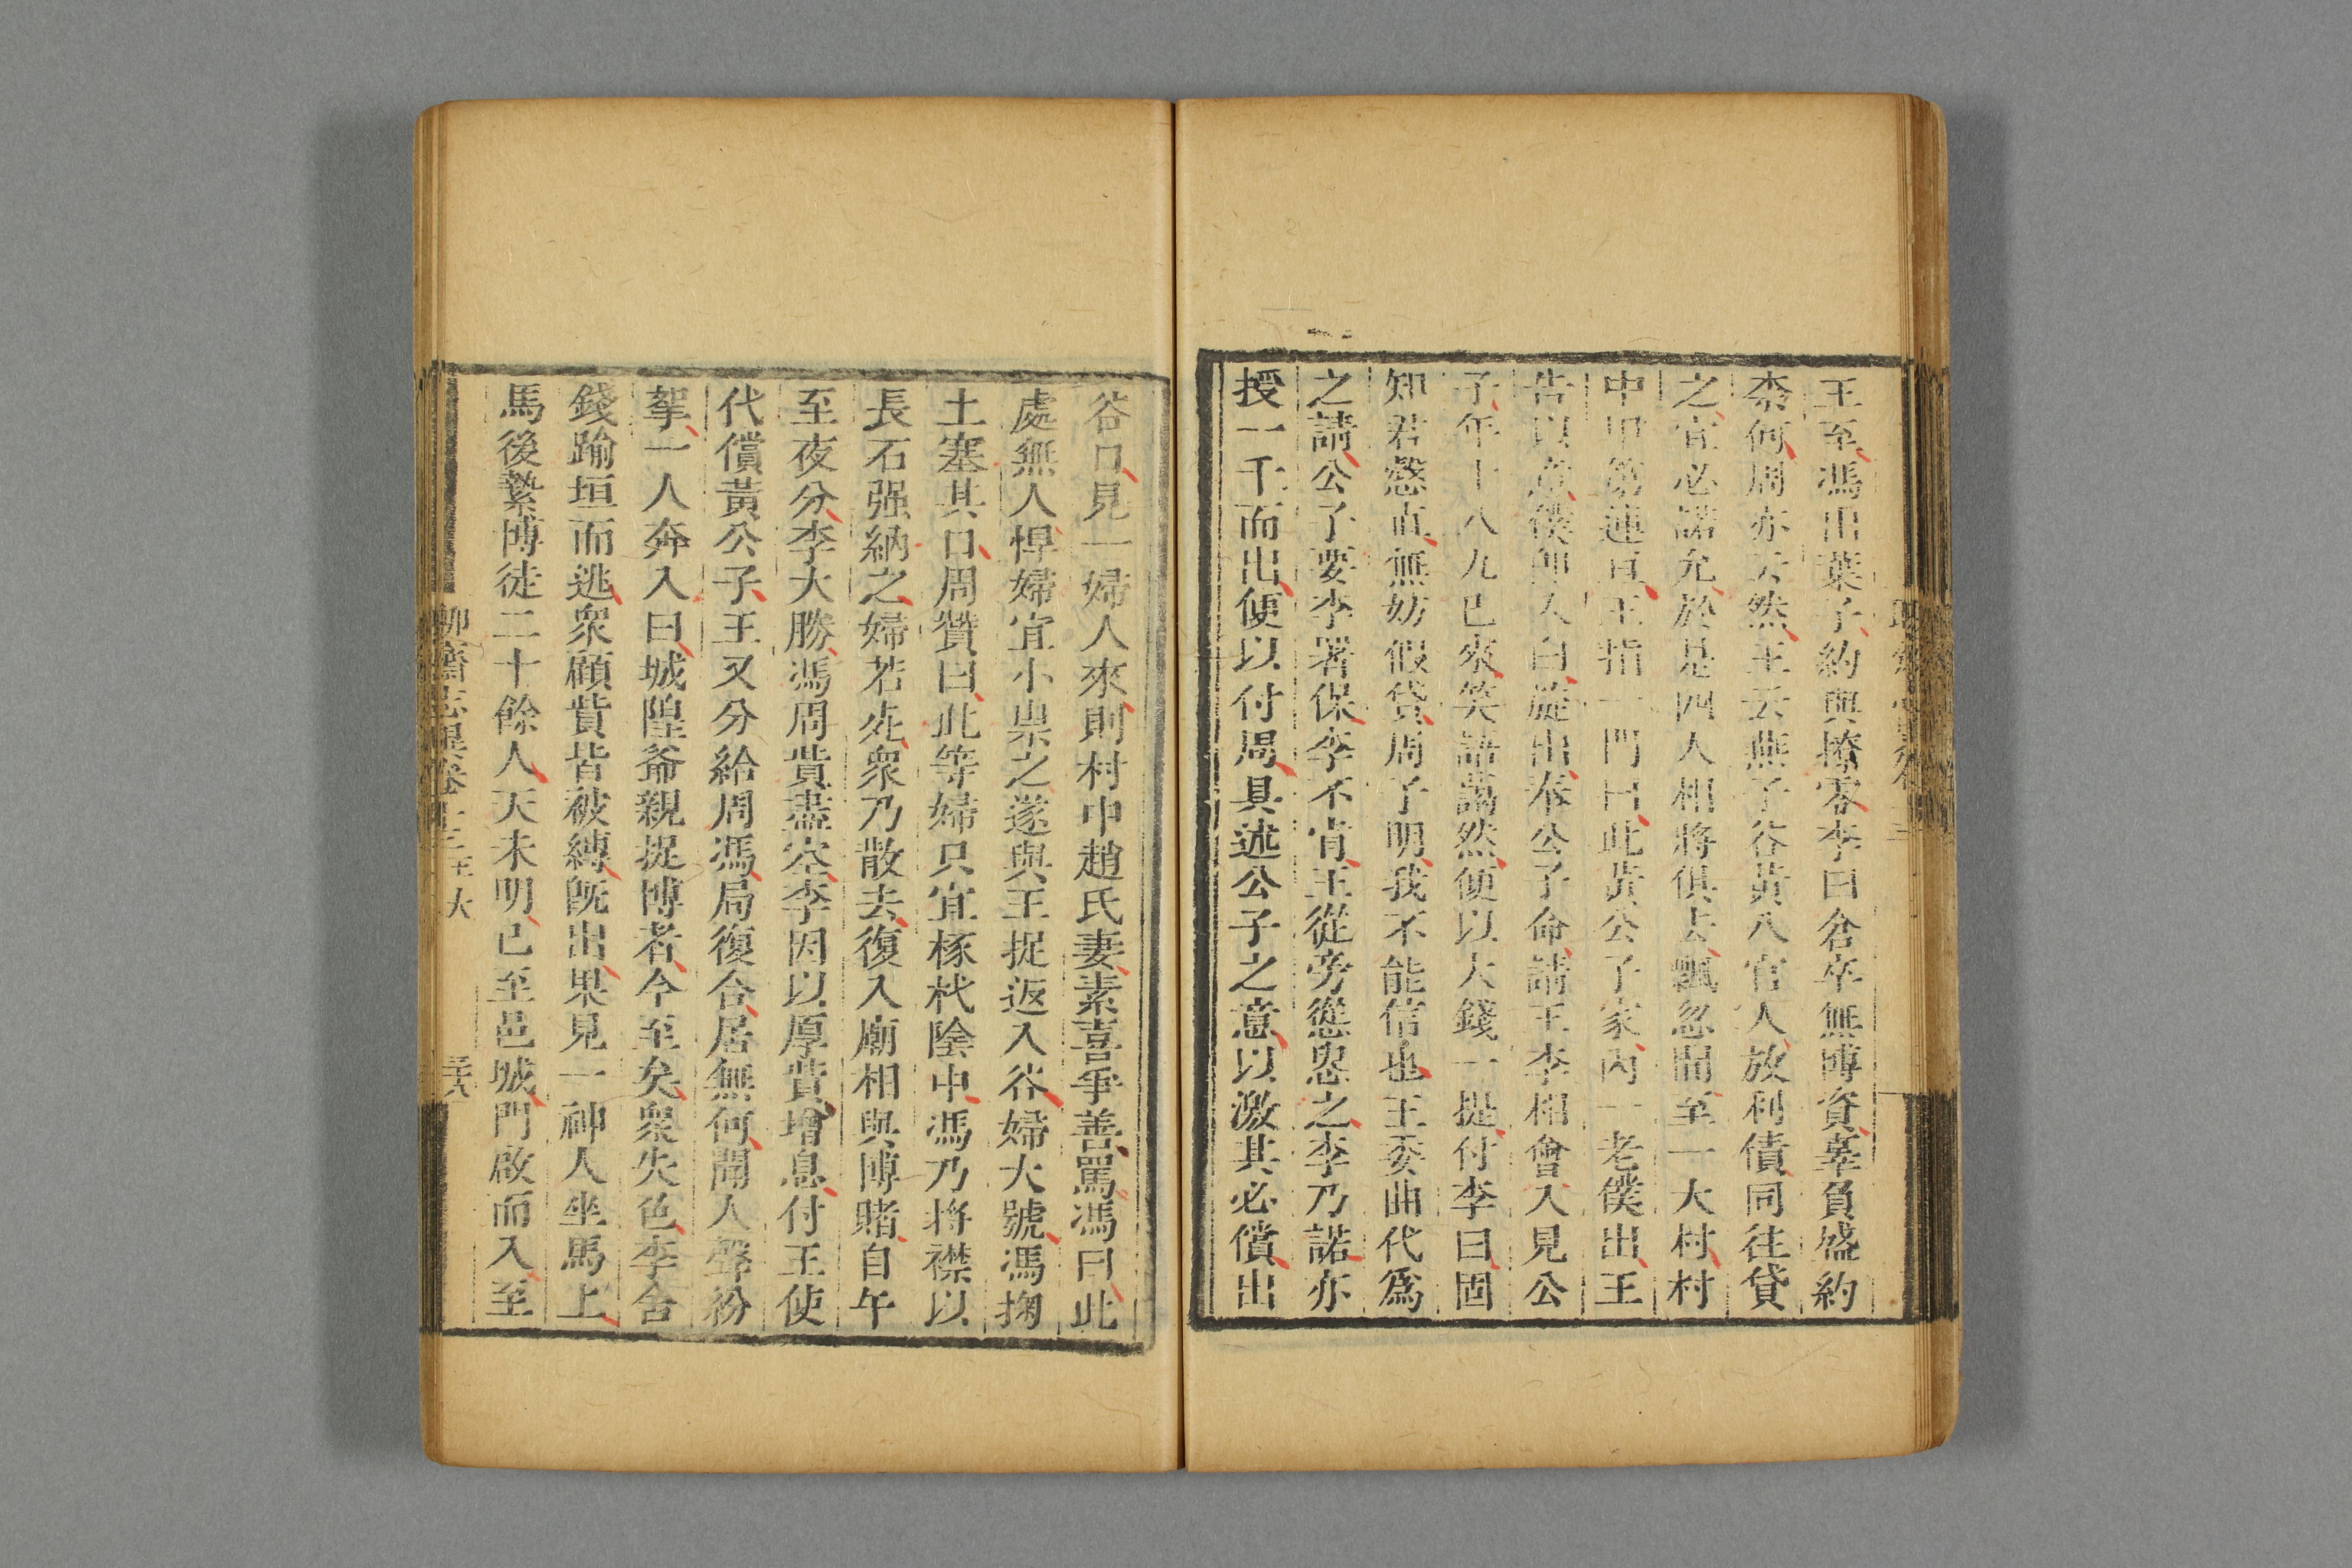 王至馮出葉子約與撩零李曰倉卒無博資辜負盛約
柰何周亦云然王云燕子谷黃八官人放利債同往貸
之宜必諾允於是四人相將俱去飄忽間至一大村村
中甲第連亘王指一門曰此黃公子家內一老僕出王
告以意僕卽入白旋出奉公子命請王李相會入見公
子年十八九已來笑語藹然便以大錢一提付李曰固
知君慤直無妨假貸周子明我不能信也王委曲代爲
之請公子要李署保李不肯王從旁慫恿之李乃諾亦
授一千而出便以付周具述公子之意以激其必償出
谷口見一婦人來則村中趙氏妻素喜爭善罵馮曰此
處無人悍婦宜小祟之遂與王捉返入谷婦大號馮掬
土塞其口周贊曰此等婦只宜椓杙陰中馮乃捋襟以
長石强納之婦若死衆乃散去復入廟相與博賭自午
至夜分李大勝馮周貲盡空李因以厚貲增息付王使
代償黃公子王又分給周馮局復合居無何聞人聲紛
挐一人奔入曰城隍爺親捉博者今至矣衆失色李舍
錢踰垣而逃衆顧貲皆被縛旣出果見一神人坐馬上
馬後縶博徒二十餘人天未明已至邑城門啟而入至
聊齋志異卷十三 王大 三十八